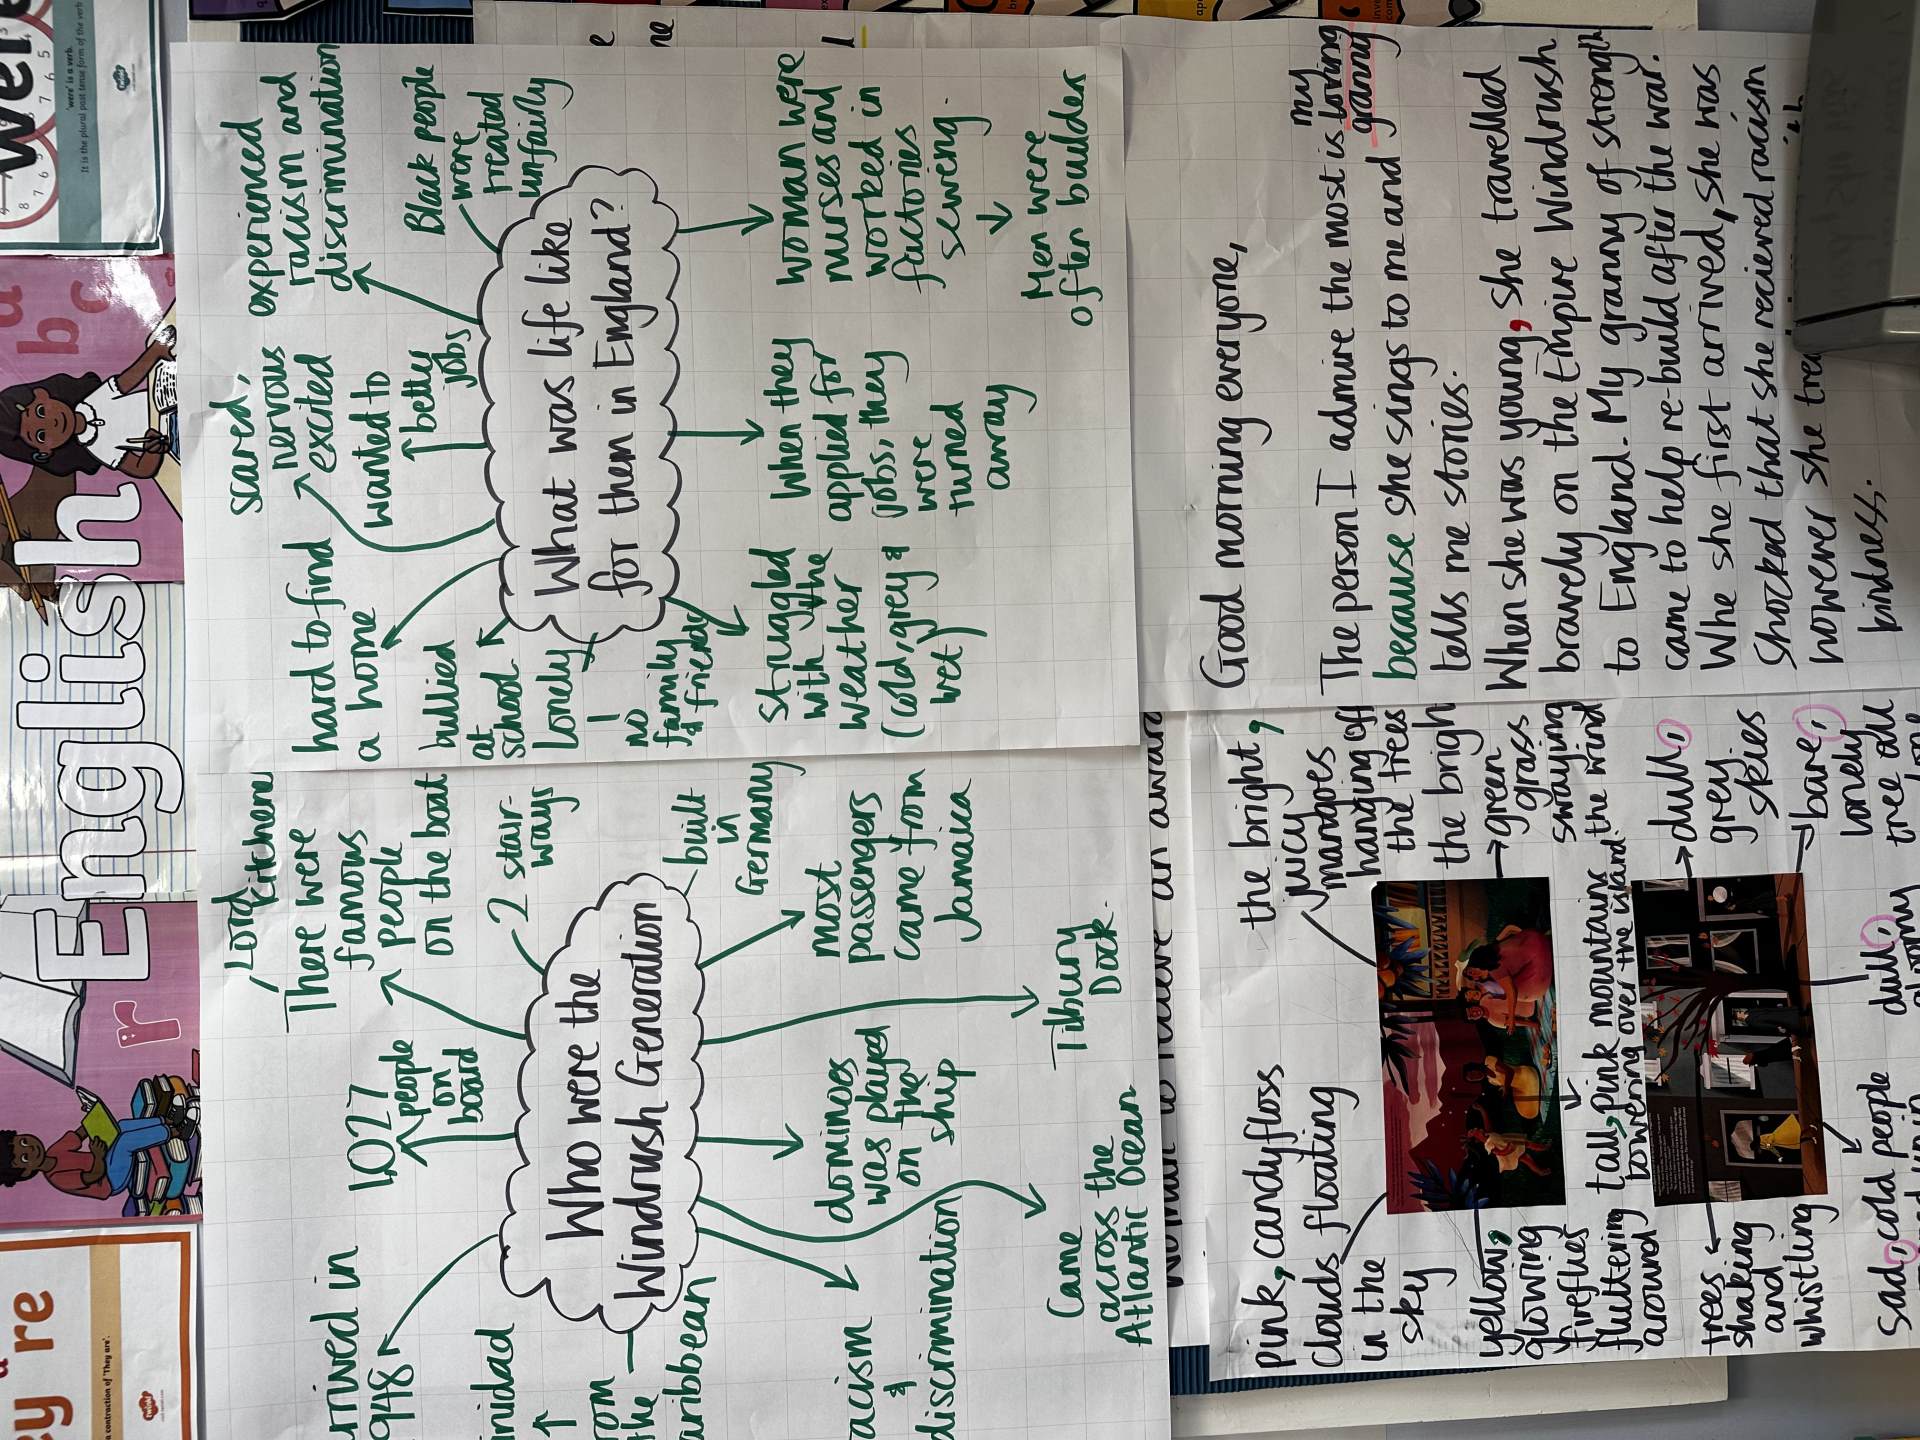 English
Lord
Kitchener
There were
famous
people
on the boat
2 stair-
ways
built
in
Germany
1,027
people
on
board
rrived in
948
inidad
rom
the
aribbean
Who were the
Windrush Generation
most
passengers
came from
Jamaica
Tilbury
Dock.
dominoes
was played
on the
ship
acism
&
discrimination
Came
across the
Atlantic Ocean
scared,
nervous
excited
experienced
racism and
discrimination
Black people
were
treated
unfairly
wanted to
betty
jobs
hard to find
a home
bullied
at
school
Lonely
no
family
& friends
What was life like
for them in England?
struggled
with the
weather
(cold, grey &
wet)
When they
applied for
jobs, they
were
turned
away
woman were
nurses and
worked in
factories
sewing.
Men were
often builder
pink, candyfloss
clouds floating
in the
sky
the bright,
juicy
mangoes
hanging off
the trees
the bright
green
grass
swaying
the wind
yellow,
glowing
fireflies
fluttering
around
tall, pink mountains
towering over the island.
trees
shaking
and
whistling
dull,
grey
skies
bare,
lonely
tree all
dull,
gloomy
sad, cold people
Good morning everyone,
The person I admire the most is my loving granny
because she sings to me and
tells me stories.
When she was young, she travelled
bravely on the Empire Windrush
to England. My granny of strength
came to help re-build after the war.
Whe she first arrived, she was
shocked that she recieved racism
however she trea
kindness.
were
'were' is a verb.
It is the plural past tense form of the verb
ey're
a contraction of 'They are'.
twinkl